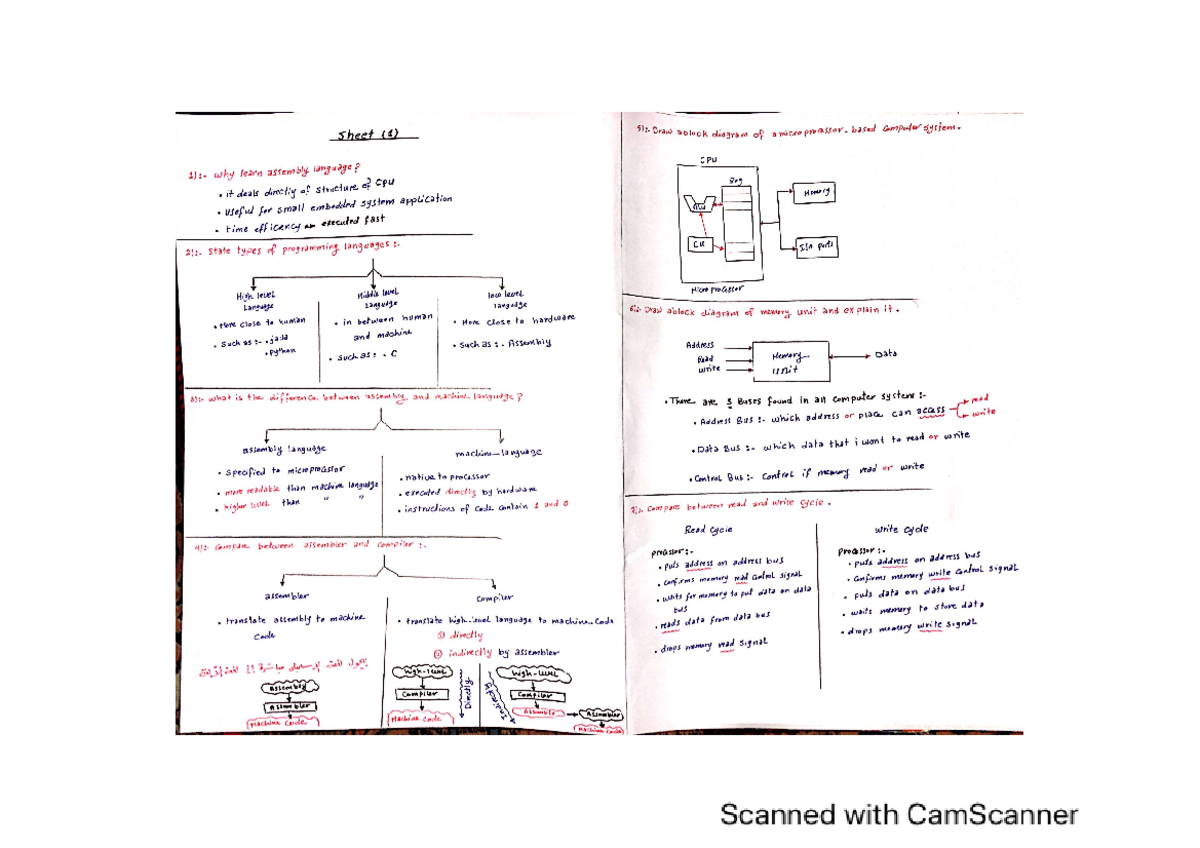 Sheet (1)
1):- why learn assembly language?
• it deals directly of structure of CPU
• useful for small embedded system application
• time efficiency executed fast
2):- State types of programming languages :-
High level
Language
• More close to human
• Such as :- • java
• python
Middle level
Language
• in between human
and machine
• Such as : • C
low level
language
• More close to hardware
• Such as : • Assembly
3):- what is the difference between assembly and machine language?
assembly language
• Specified to microprocessor
• more readable than machine language
• higher level than " "
machine-language
• native to processor
• executed directly by hardware
• instructions of code contain 1 and 0
4):- Compare between assembler and compiler :-
assembler
• translate assembly to machine
code
Assembly
Assembler
Machine code
Compiler
• translate high-level language to machine code
① directly
② indirectly by assembler
high-level
Compiler
Machine code
Directly
high-level
Compiler
Assembler
Machine code
5):- Draw a block diagram of a microprocessor-based computer system.
CPU
Reg
ALU
CU
Memory
I/O ports
Microprocessor
6):- Draw a block diagram of memory unit and explain it.
Address
Read
write
Memory
unit
Data
• There are 3 Buses found in all computer system :-
• Address Bus :- which address or place can access read
write
• Data Bus :- which data that i want to read or write
• Control Bus :- Control if memory read or write
7):- Compare between read and write cycle.
Read cycle
processor :-
• puts address on address bus
• confirms memory read control signal
• waits for memory to put data on data
bus
• reads data from data bus
• drops memory read signal
write cycle
processor :-
• puts address on address bus
• confirms memory write control signal
• puts data on data bus
• waits memory to store data
• drops memory write signal
Scanned with CamScanner